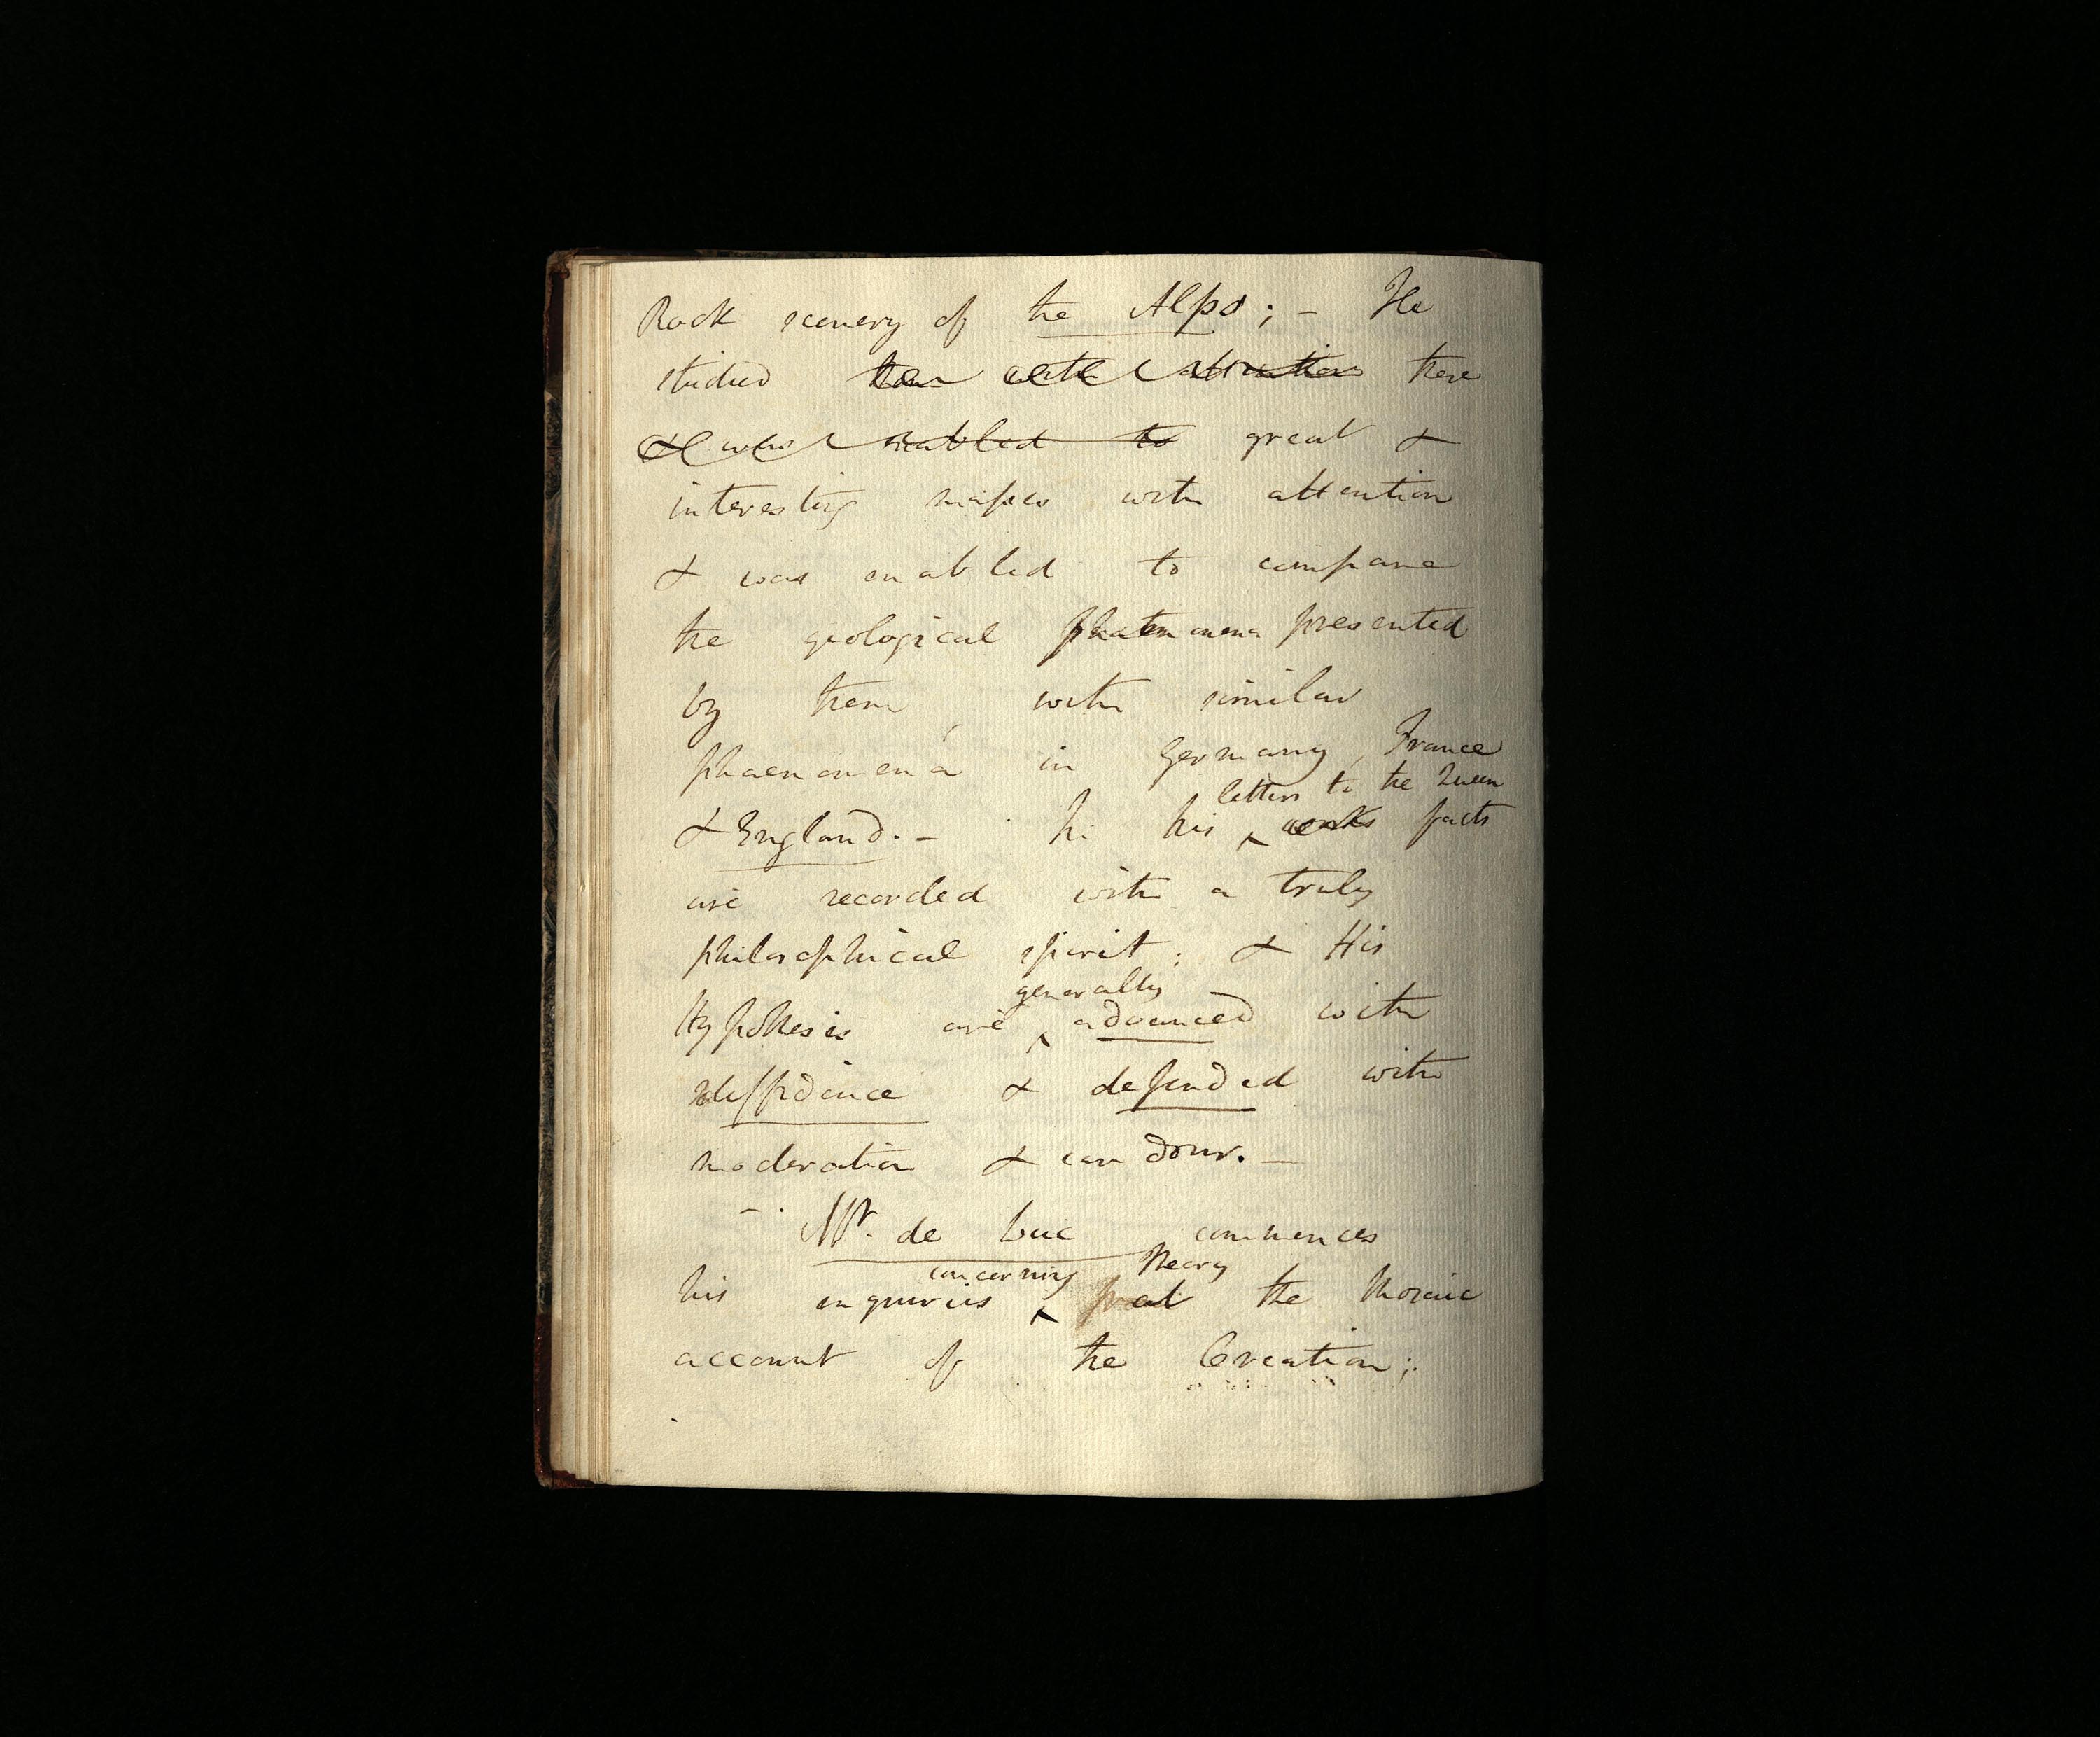 Rock scenery of the Alps; – He
studied them with attention these
& was enabled to great &
interesting masses with attention
& was enabled to compare
the geological phaenomena presented
by them, with similar
phaenomena in Germany, France
letters to the Queen
& England. – In his ^ works facts
are recorded with a truly
philosophical spirit; & His
generally
Hypothesis are ^ advanced with
diffidence & defended with
moderation & candour. –
– Mr. de Luc commences
concerning Theory
his enquiries ^ the Mosaic
account of the Creation;